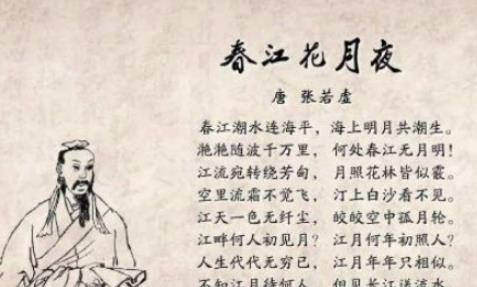 春江花月夜
唐 张若虚
春江潮水连海平，海上明月共潮生。
滟滟随波千万里，何处春江无月明！
江流宛转绕芳甸，月照花林皆似霰。
空里流霜不觉飞，汀上白沙看不见。
江天一色无纤尘，皎皎空中孤月轮。
江畔何人初见月？江月何年初照人？
人生代代无穷已，江月年年只相似。
不知江月待何人，但见长江送流水